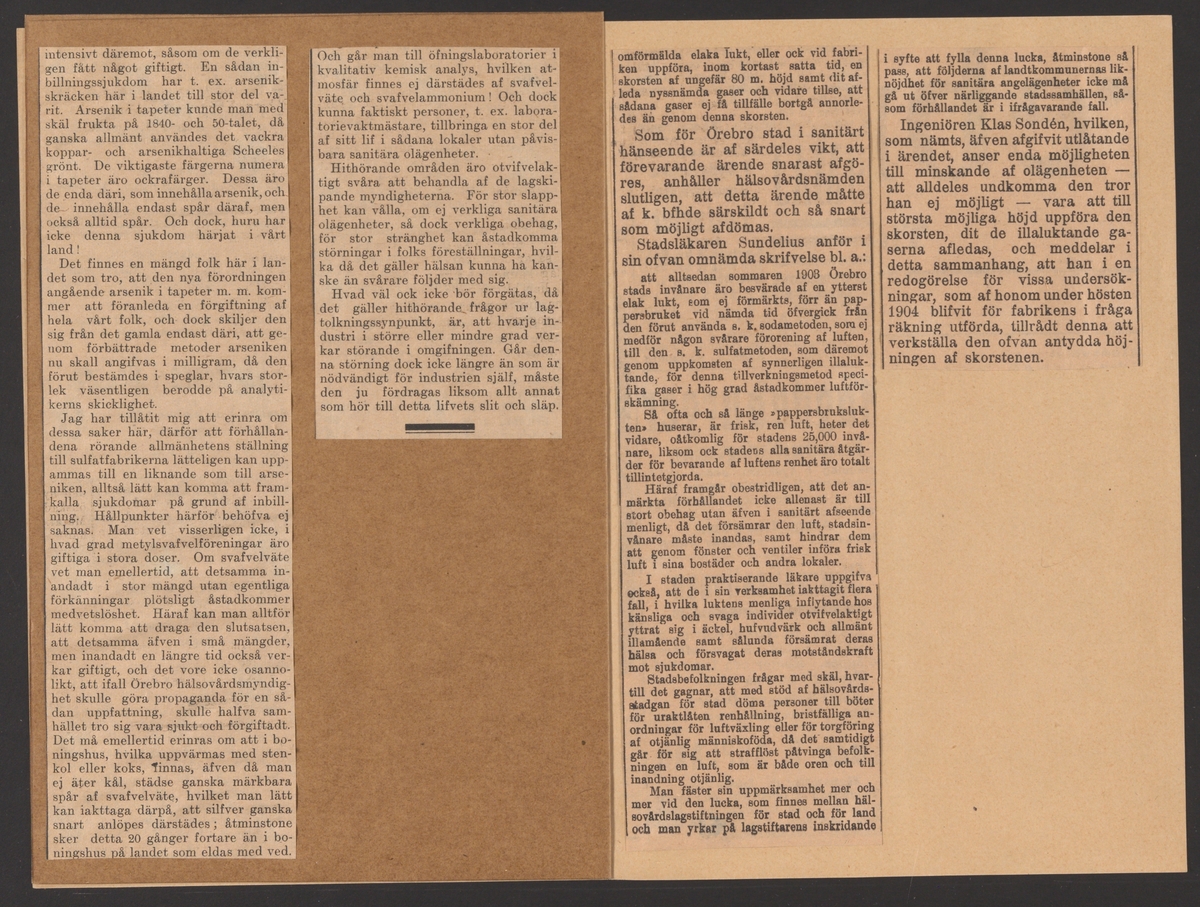 intensivt däremot, såsom om de verkli-
gen fått något giftigt. En sådan in-
billningssjukdom har t. ex. arsenik-
skräcken här i landet till stor del va-
rit. Arsenik i tapeter kunde man med
skäl frukta på 1840- och 50-talet, då
ganska allmänt användes det vackra
koppar- och arsenikhaltiga Scheeles
grönt. De viktigaste färgerna numera
i tapeter äro ockrafärger. Dessa äro
de enda däri, som innehålla arsenik, och
de innehålla endast spår däraf, men
också alltid spår. Och dock, huru har
icke denna sjukdom härjat i vårt
land!
Det finnes en mängd folk här i lan-
det som tro, att den nya förordningen
angående arsenik i tapeter m. m. kom-
mer att föranleda en förgiftning af
hela vårt folk, och dock skiljer den
sig från det gamla endast däri, att ge-
nom förbättrade metoder arseniken
nu skall angifvas i milligram, då den
förut bestämdes i speglar, hvars stor-
lek väsentligen berodde på analyti-
kerns skicklighet.
Jag har tillåtit mig att erinra om
dessa saker här, därför att förhållan-
dena rörande allmänhetens ställning
till sulfatfabrikerna lätteligen kan upp-
ammas till en liknande som till arse-
niken, alltså lätt kan komma att fram-
kalla sjukdomar på grund af inbill-
ning. Hållpunkter härför behöfva ej
saknas. Man vet visserligen icke, i
hvad grad metylsvafvelföreningar äro
giftiga i stora doser. Om svafvelväte
vet man emellertid, att detsamma in-
andadt i stor mängd utan egentliga
förkänningar plötsligt åstadkommer
medvetslöshet. Häraf kan man alltför
lätt komma att draga den slutsatsen,
att detsamma äfven i små mängder,
men inandadt en längre tid också ver-
kar giftigt, och det vore icke osanno-
likt, att ifall Örebro hälsovårdsmyndig-
het skulle göra propaganda för en så-
dan uppfattning, skulle halfva sam-
hället tro sig vara sjukt och förgiftadt.
Det må emellertid erinras om att i bo-
ningshus, hvilka uppvärmas med sten-
kol eller koks, finnas, äfven då man
ej äter kål, städse ganska märkbara
spår af svafvelväte, hvilket man lätt
kan iakttaga därpå, att silfver ganska
snart anlöpes därstädes; åtminstone
sker detta 20 gånger fortare än i bo-
ningshus på landet som eldas med ved.
Och går man till öfningslaboratorier i
kvalitativ kemisk analys, hvilken at-
mosfär finnes ej därstädes af svafvel-
väte och svafvelammonium! Och dock
kunna faktiskt personer, t. ex. labora-
torievaktmästare, tillbringa en stor del
af sitt lif i sådana lokaler utan påvis-
bara sanitära olägenheter.
Hithörande områden äro otvifvelak-
tigt svåra att behandla af de lagski-
pande myndigheterna. För stor slapp-
het kan vålla, om ej verkliga sanitära
olägenheter, så dock verkliga obehag,
för stor stränghet kan åstadkomma
störningar i folks föreställningar, hvil-
ka då det gäller hälsan kunna ha kan-
ske än svårare följder med sig.
Hvad väl ock icke bör förgätas, då
det gäller hithörande frågor ur lag-
tolkningssynpunkt, är, att hvarje in-
dustri i större eller mindre grad ver-
kar störande i omgifningen. Går den-
na störning dock icke längre än som är
nödvändigt för industrien själf, måste
den ju fördragas liksom allt annat
som hör till detta lifvets slit och släp.
omförmälda elaka lukt, eller ock vid fabri-
ken uppföra, inom kortast satta tid, en
skorsten af ungefär 80 m. höjd samt dit af-
leda nyssnämda gaser och vidare tillse, att
sådana gaser ej få tillfälle bortgå annorle-
des än genom denna skorsten.
Som för Örebro stad i sanitärt
hänseende är af särdeles vikt, att
förevarande ärende snarast afgö-
res, anhåller hälsovårdsnämden
slutligen, att detta ärende måtte
af k. bfhde särskildt och så snart
som möjligt afdömas.
Stadsläkaren Sundelius anför i
sin ofvan omnämda skrifvelse bl. a.:
att alltsedan sommaren 1903 Örebro
stads invånare äro besvärade af en ytterst
elak lukt, som ej förmärkts, förr än pap-
persbruket vid nämda tid öfvergick från
den förut använda s. k. sodametoden, som ej
medför någon svårare förorening af luften,
till den s. k. sulfatmetoden, som däremot
genom uppkomsten af synnerligen illaluk-
tande, för denna tillverkningsmetod speci-
fika gaser i hög grad åstadkommer luftför-
skämning.
Så ofta och så länge »pappersbruksluk-
ten» huserar, är frisk, ren luft, heter det
vidare, oåtkomlig för stadens 25,000 invå-
nare, liksom ock stadens alla sanitära åtgär-
der för bevarande af luftens renhet äro totalt
tillintetgjorda.
Häraf framgår obestridligen, att det an-
märkta förhållandet icke allenast är till
stort obehag utan äfven i sanitärt afseende
menligt, då det försämrar den luft, stadsin-
vånare måste inandas, samt hindrar dem
att genom fönster och ventiler införa frisk
luft i sina bostäder och andra lokaler.
I staden praktiserande läkare uppgifva
också, att de i sin verksamhet iakttagit flera
fall, i hvilka luktens menliga inflytande hos
känsliga och svaga individer otvifvelaktigt
yttrat sig i äckel, hufvudvärk och allmänt
illamående samt sålunda försämrat deras
hälsa och försvagat deras motståndskraft
mot sjukdomar.
Stadsbefolkningen frågar med skäl, hvar-
till det gagnar, att med stöd af hälsovårds-
stadgan för stad döma personer till böter
för uraktlåten renhållning, bristfälliga an-
ordningar för luftväxling eller för torgföring
af otjänlig människoföda, då det samtidigt
går för sig att strafflöst påtvinga befolk-
ningen en luft, som är både oren och till
inandning otjänlig.
Man fäster sin uppmärksamhet mer och
mer vid den lucka, som finnes mellan häl-
sovårdslagstiftningen för stad och för land
och man yrkar på lagstiftarens inskridande
i syfte att fylla denna lucka, åtminstone så
pass, att följderna af landtkommunernas lik-
nöjdhet för sanitära angelägenheter icke må
gå ut öfver närliggande stadssamhällen, så-
som förhållandet är i ifrågavarande fall.
Ingeniören Klas Sondén, hvilken,
som nämts, äfven afgifvit utlåtande
i ärendet, anser enda möjligheten
till minskande af olägenheten —
att alldeles undkomma den tror
han ej möjligt — vara att till
största möjliga höjd uppföra den
skorsten, dit de illaluktande ga-
serna afledas, och meddelar i
detta sammanhang, att han i en
redogörelse för vissa undersök-
ningar, som af honom under hösten
1904 blifvit för fabrikens i fråga
räkning utförda, tillrådt denna att
verkställa den ofvan antydda höj-
ningen af skorstenen.